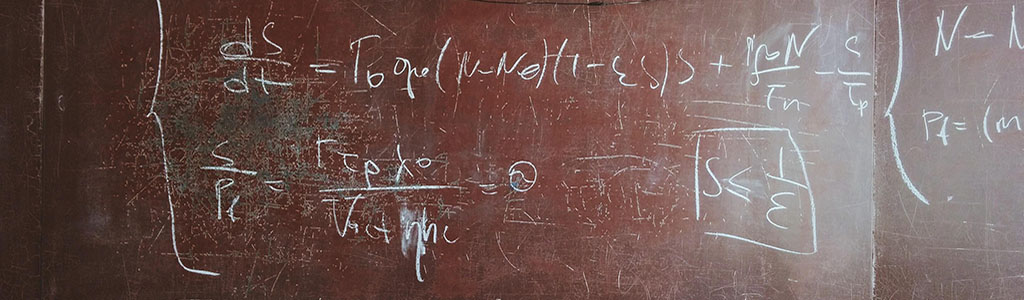 dS/dt = Γ₀ g₀ (N - N₀)(1 - εS)S + N/τₙ - S/τₚ
S/P_f = Γτₚλ₀/V_act ηhc = ϑ
S ≤ 1/ε
N = N
P_f = (m